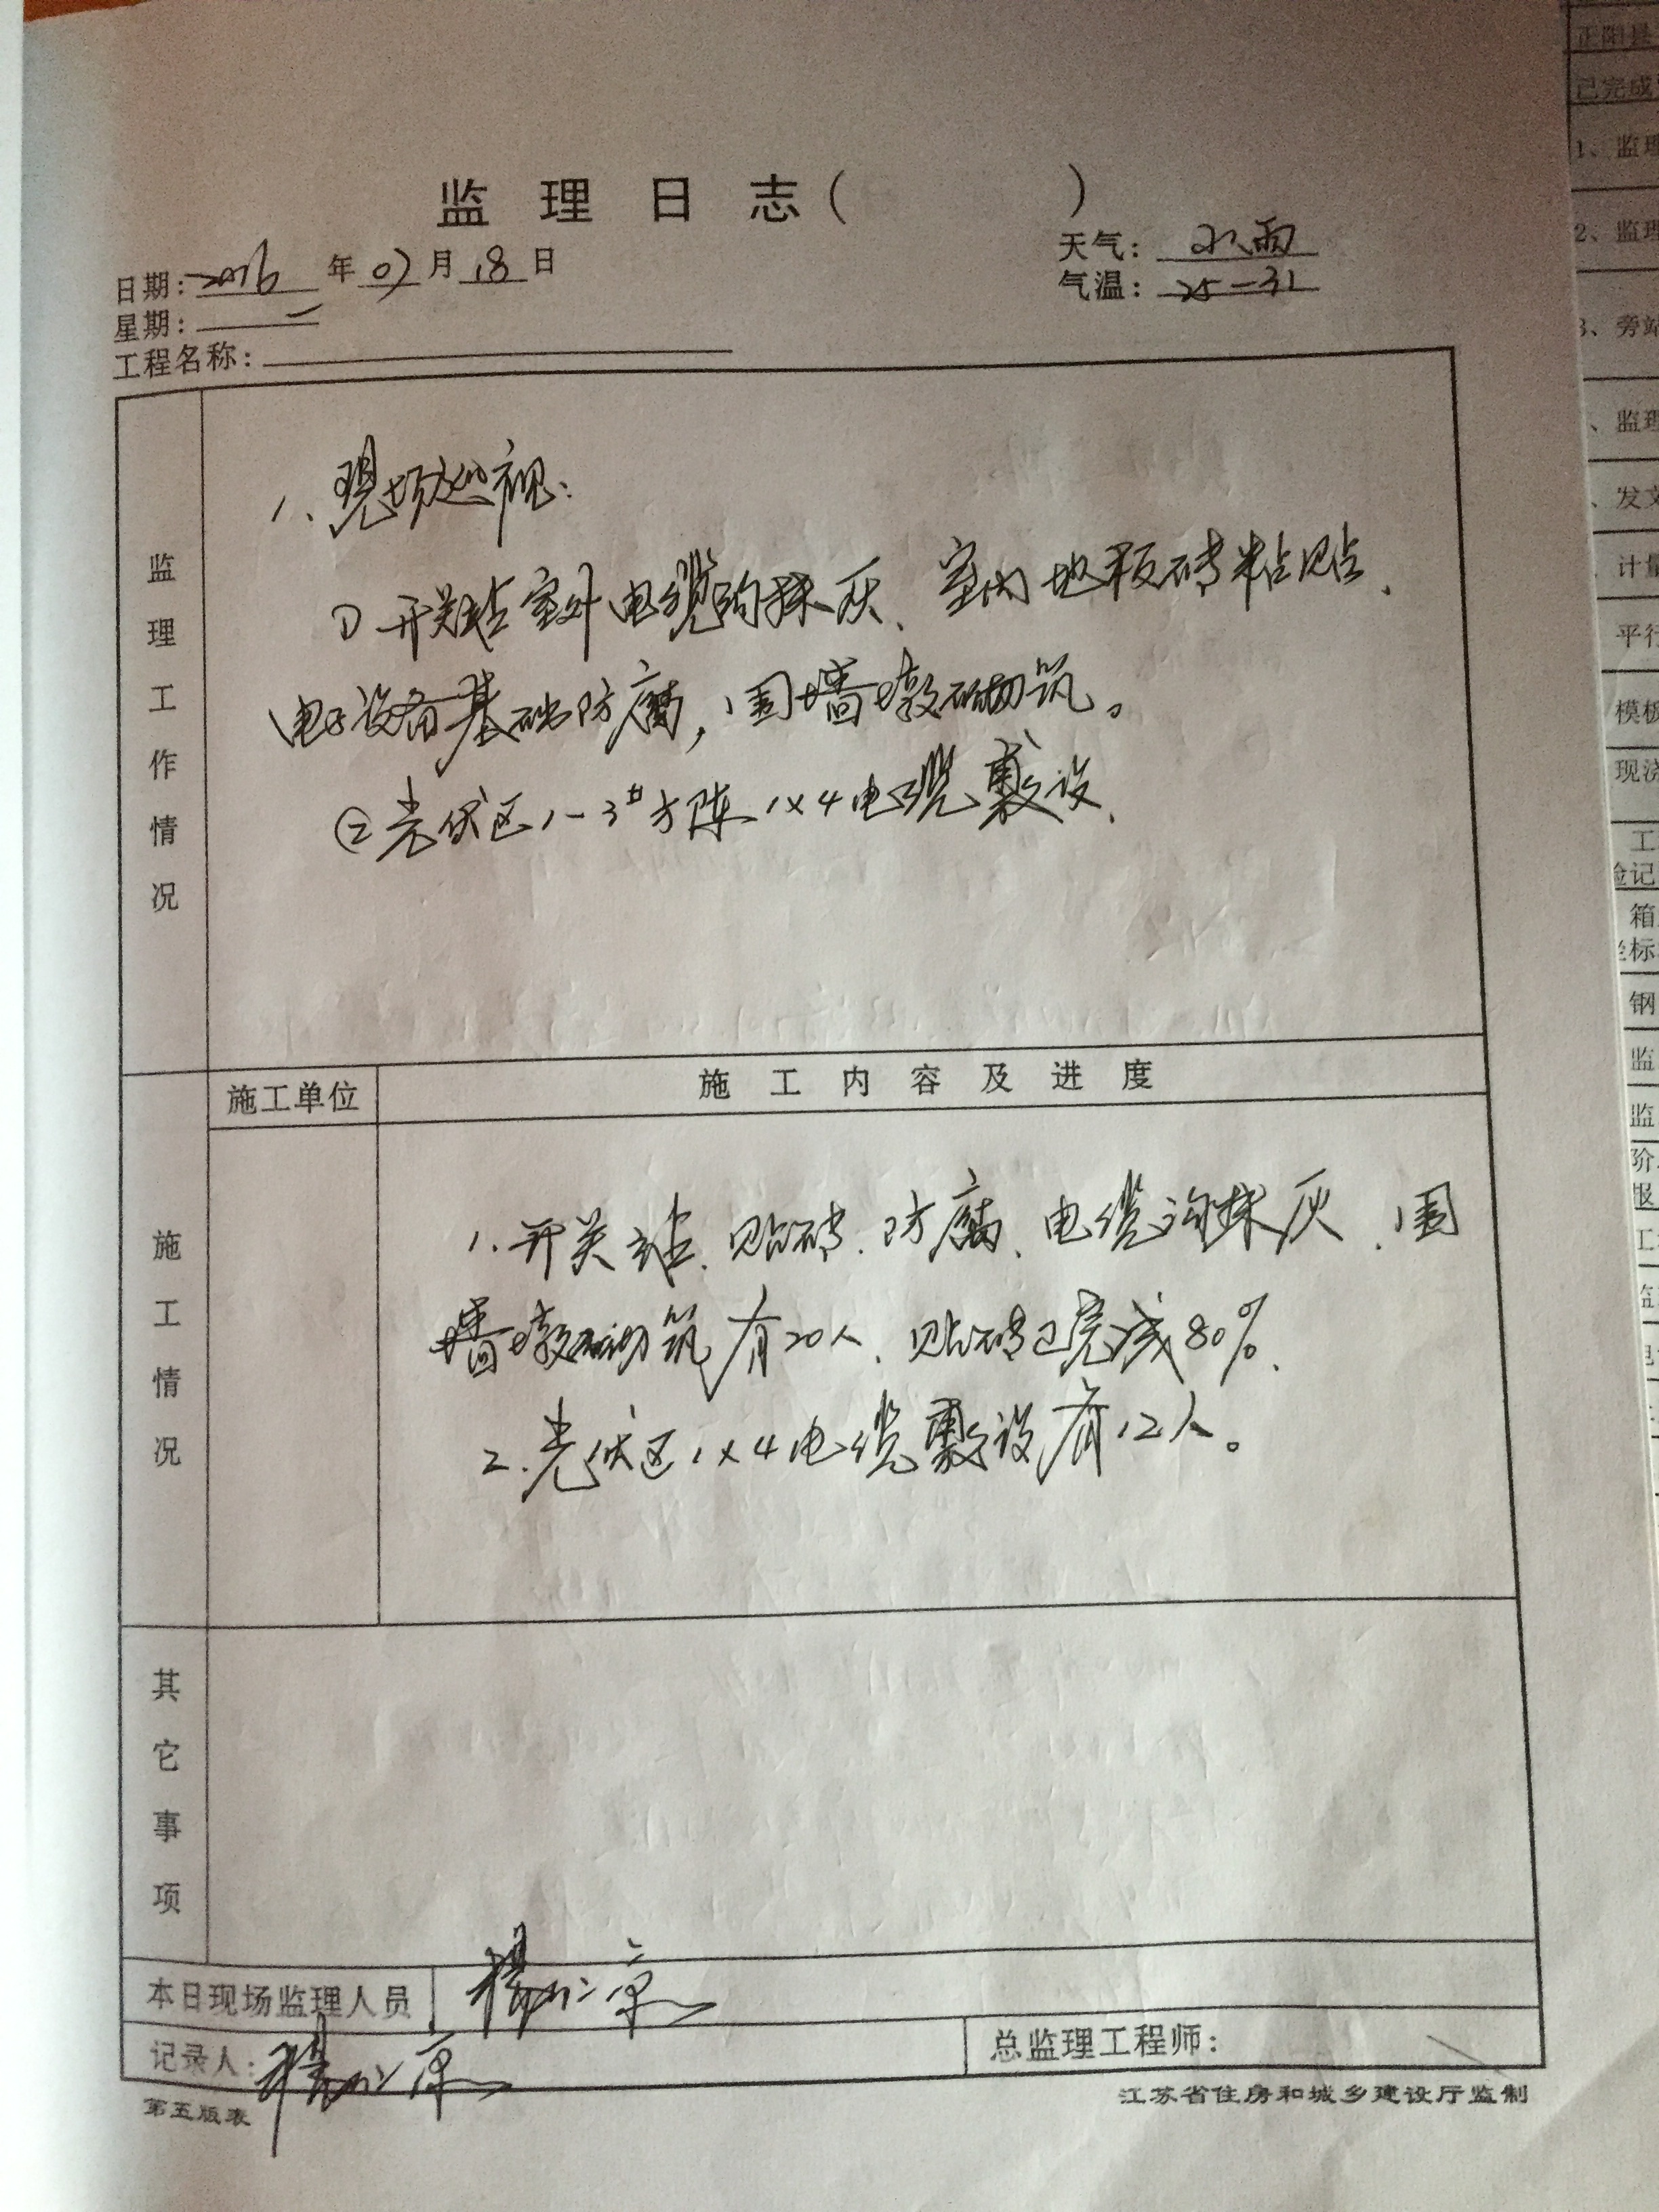 监理日志( )
日期: 2016 年 07 月 18 日
天气: 小雨
星期: 一
气温: 25-31
工程名称:
监理工作情况
1、现场巡视:
① 开关站室外电缆沟抹灰、室内地板砖粘贴、
电子设备基础防腐,围墙墩砌筑。
② 光伏区1-3#方阵1×4电缆敷设、
施工单位
施工内容及进度
施工情况
1、开关站、贴砖、防腐、电缆沟抹灰、围
墙墩砌筑有20人、贴砖已完成80%、
2、光伏区1×4电缆敷设有12人。
其它事项
本日现场监理人员
记录人:
总监理工程师:
第五版表
江苏省住房和城乡建设厅监制
正阳县
已完成
1、监理
2、监理
3、旁站
、监理
、发文
计量
平行
模板
现浇
工
验记
箱
坐标
钢
监
监
阶
报
工
监